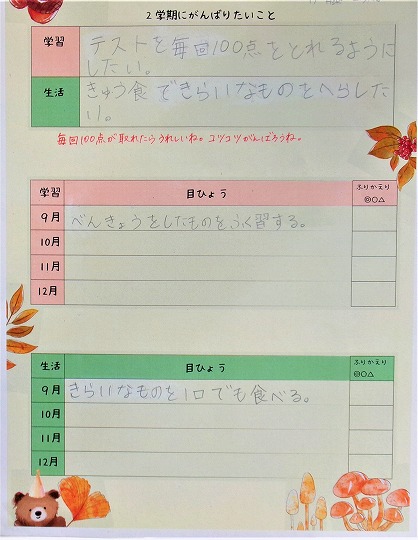 2学期にがんばりたいこと
学習
テストを毎回100点をとれるように
したい。
生活
きゅう食できらいなものをへらした
い。
毎回100点が取れたらうれしいね。コツコツがんばろうね。
学習 目ひょう ふりかえり
◎○△
9月 べんきょうをしたものをふく習する。
10月
11月
12月
生活 目ひょう ふりかえり
◎○△
9月 きらいなものを1口でも食べる。
10月
11月
12月